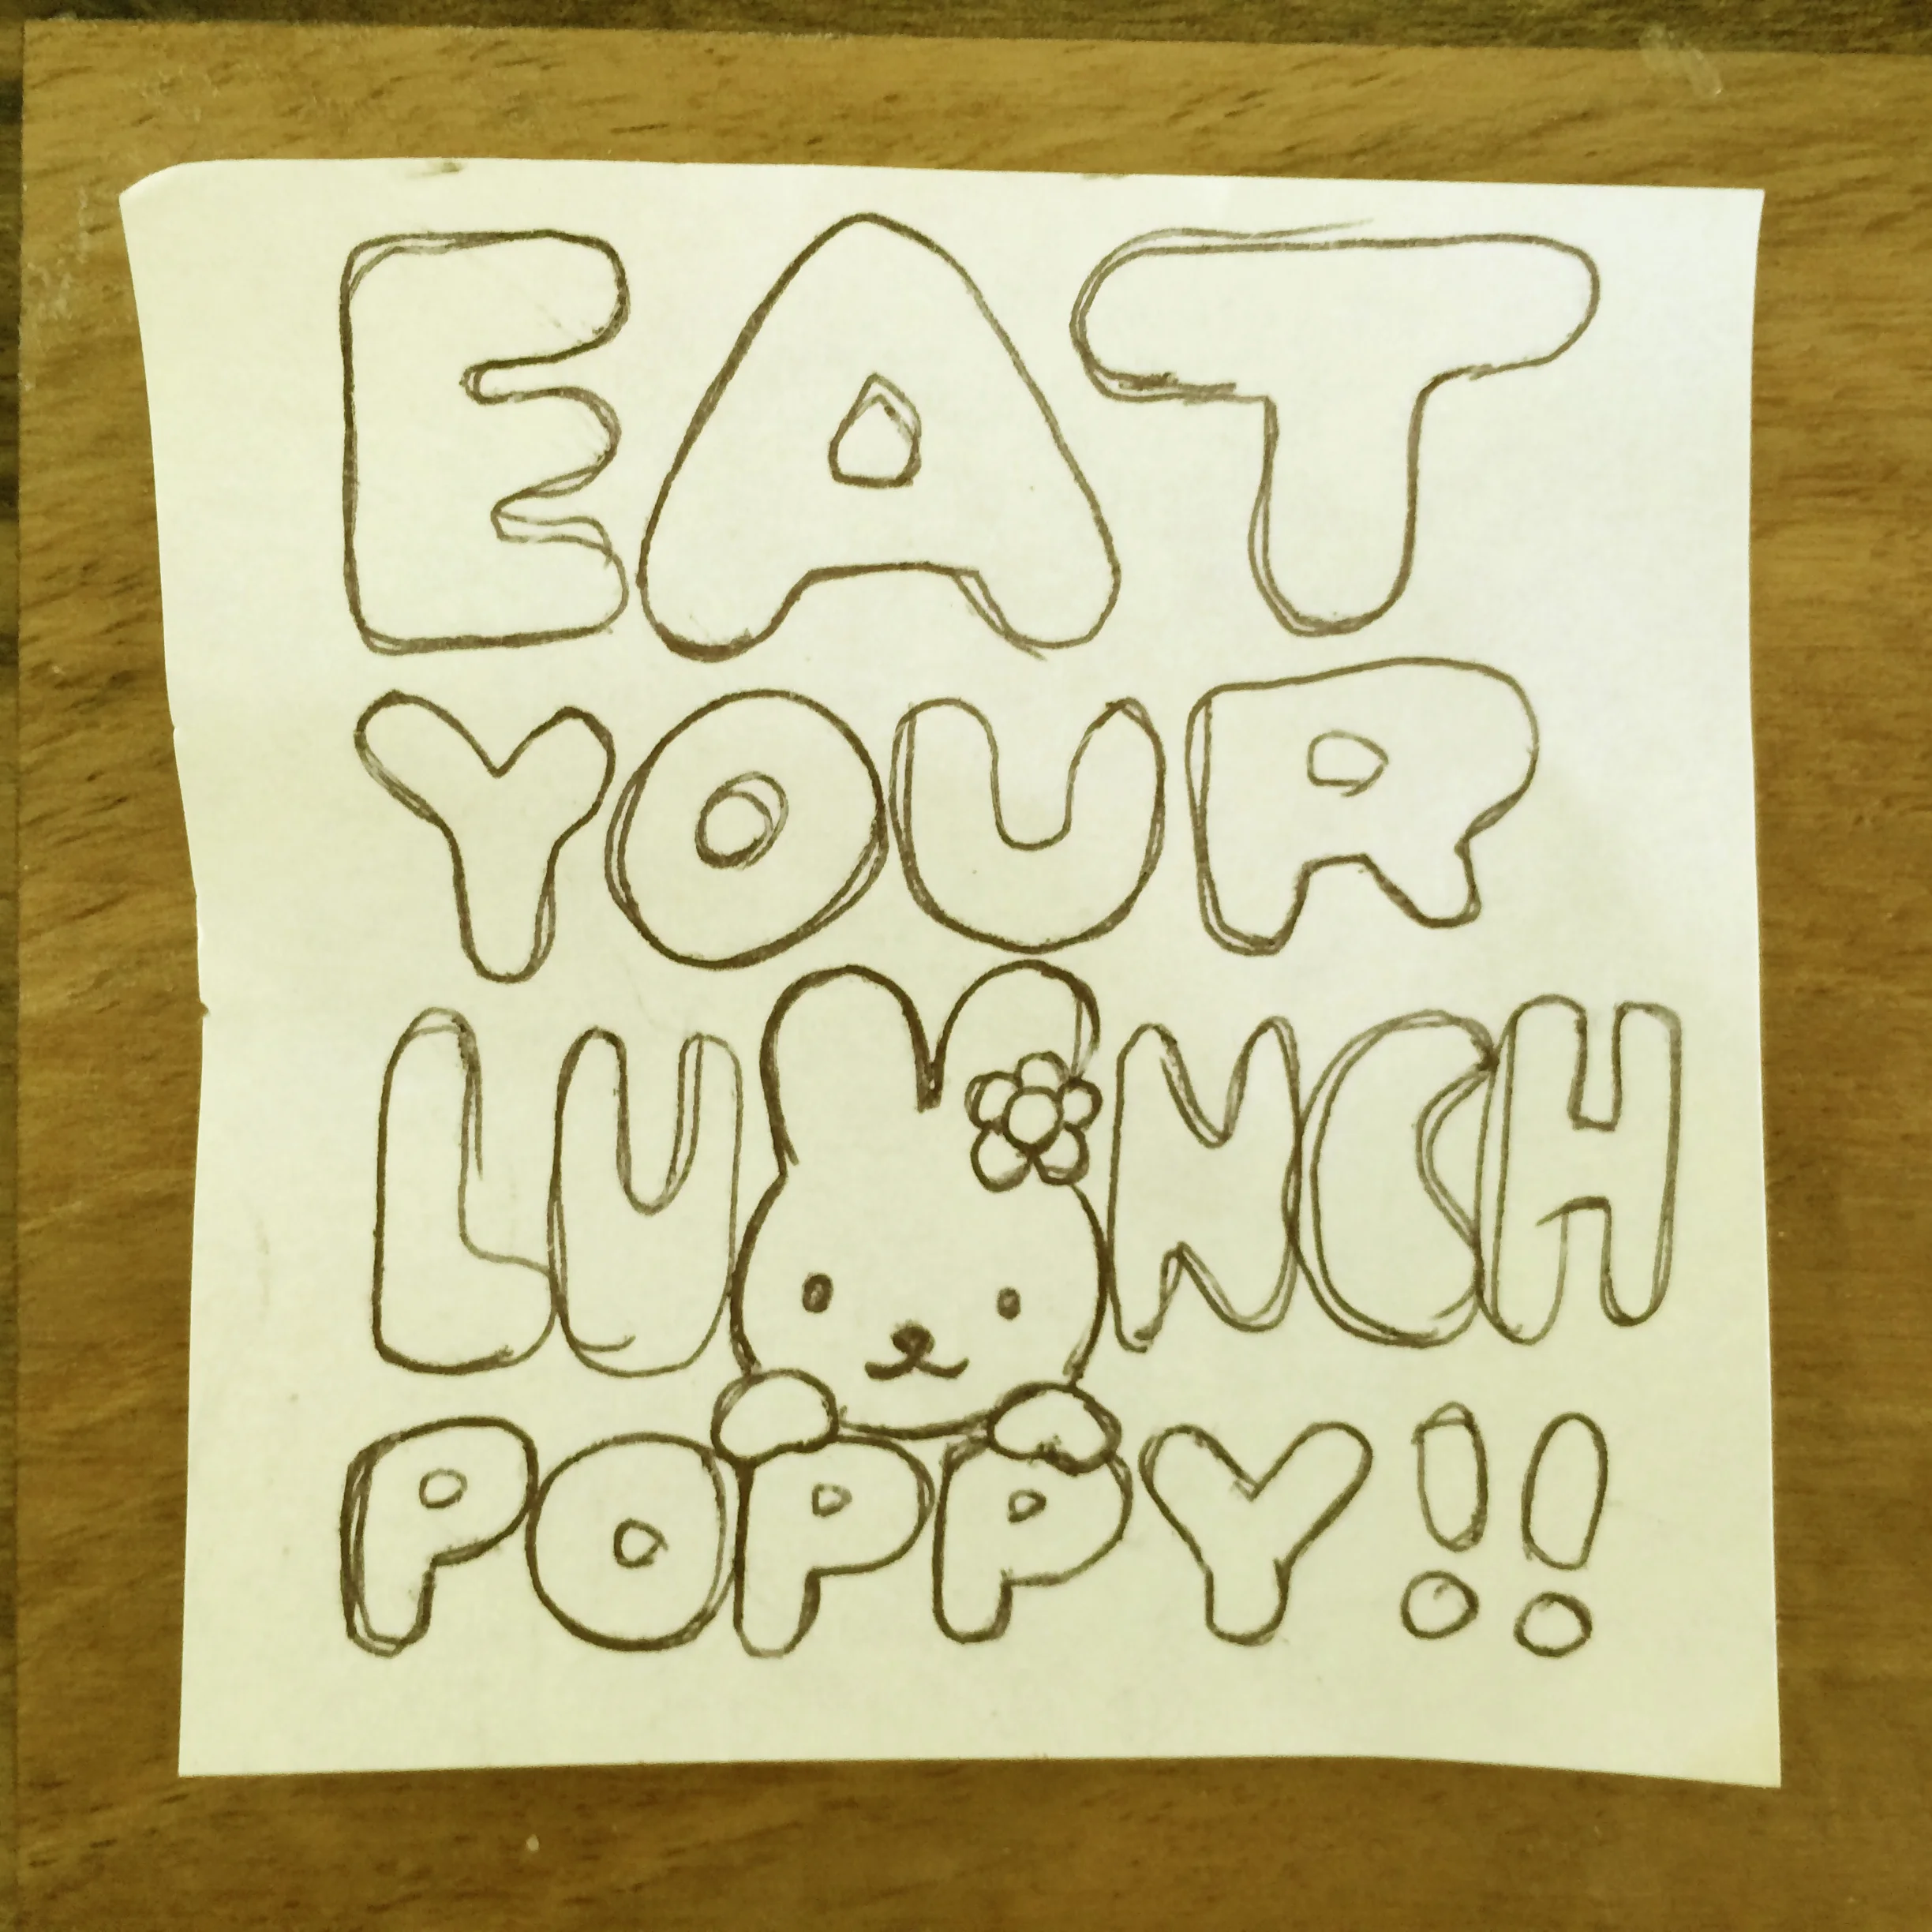 EAT
YOUR
LUNCH
POPPY!!